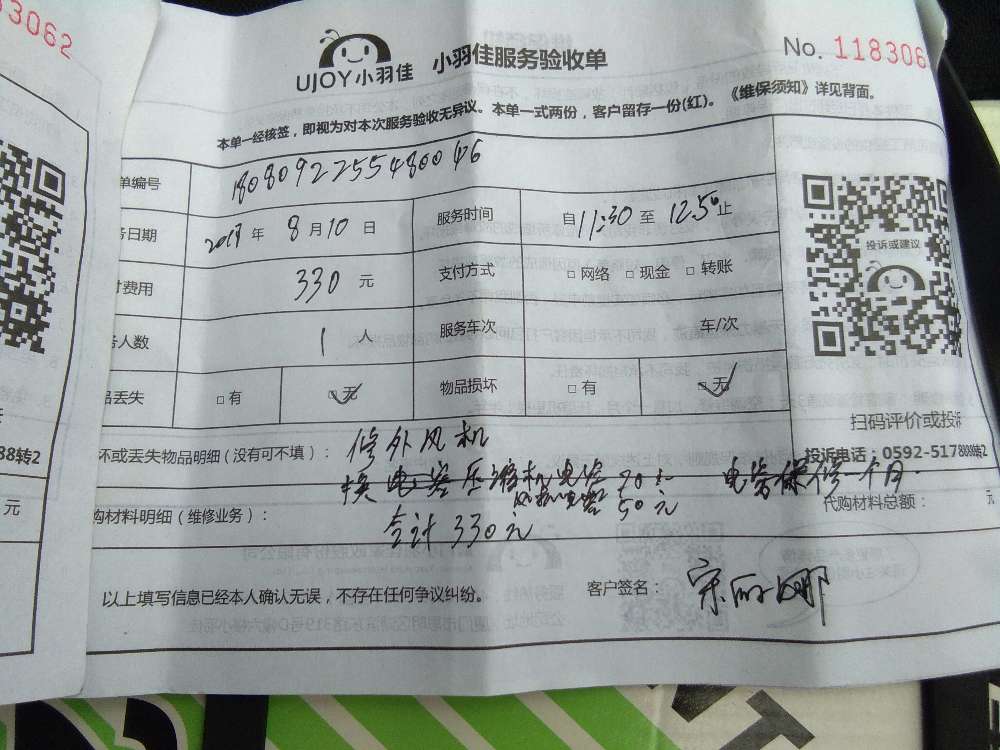 3062
UJOY小羽佳 小羽佳服务验收单 No. 118306
本单一经核签，即视为对本次服务验收无异议。本单一式两份，客户留存一份(红)。《维保须知》详见背面。
单编号
日期 年 8月10日 服务时间 自11:30至12:50止
费用 330 元 支付方式 □网络 □现金 □转账
人数 1 人 服务车次 车/次
品丢失 □有 □无 物品损坏 □有 □无
投诉或建议
扫码评价或投
投诉电话：0592-517888转2
88转2
元
坏或丢失物品明细（没有可不填）： 修外风机
换电容压缩机电容 70元 电容保修一个月
风机电容 50元
购材料明细（维修业务）： 合计330元 代购材料总额： 元
以上填写信息已经本人确认无误，不存在任何争议纠纷。 客户签名： 宋丽娜